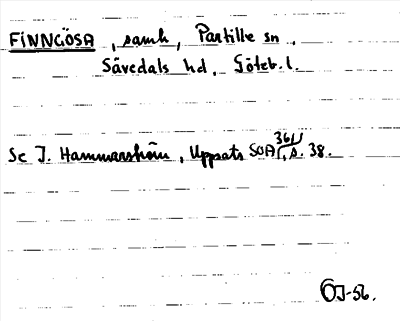 FINNGÖSA, samh, Partille sn,
Sävedals hd, Göteb. l.
Se J. Hammarström, Uppsats SOÅ 36/1, s. 38.
OJ-56.